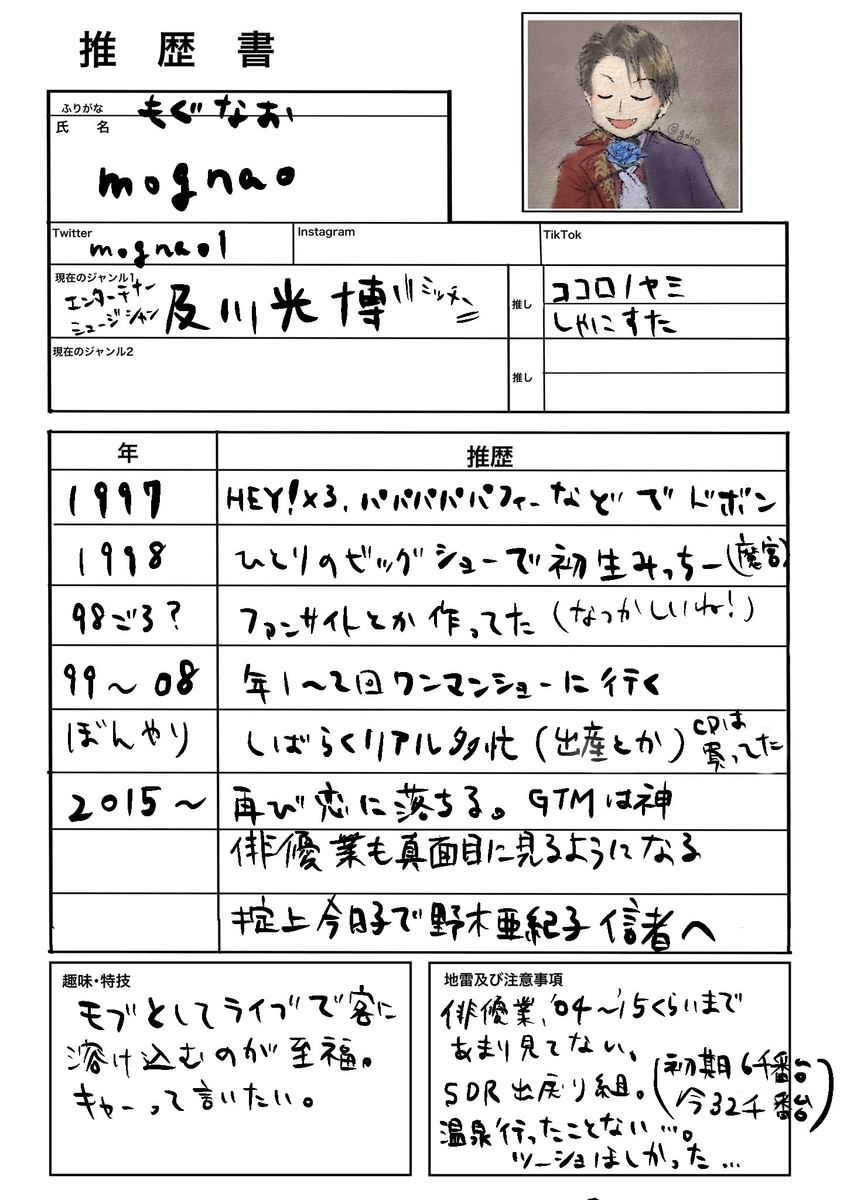 推歴書
@gdno
ふりがな もぐなお
氏 名
mognao
Twitter
mognao1
Instagram
TikTok
現在のジャンル1
エンターテナー
ミュージシャン
及川光博
ミッチー
推し
ココロノヤミ
しゃにこすた
現在のジャンル2
推し
年 推歴
1997 HEY!×3、パパパパパフィーなどでドボン
1998 ひとりのビッグショーで初生みっちー(魔宮)
98ごろ? ファンサイトとか作ってた(なつかしいね!)
99〜08 年1〜2回ワンマンショーに行く
ぼんやり しばらくリアル多忙(出産とか)CDは買ってた
2015〜 再び恋に落ちる。GTMは神
俳優業も真面目に見るようになる
掟上今日子で野木亜紀子信者へ
趣味・特技
モブとしてライブで客に
溶け込むのが至福。
キャーって言いたい。
地雷及び注意事項
俳優業、'04〜'15くらいまで
あまり見てない。
SDR出戻り組。(初期6千番台
今32千番台)
温泉行ったことない…。
ツーショほしかった…